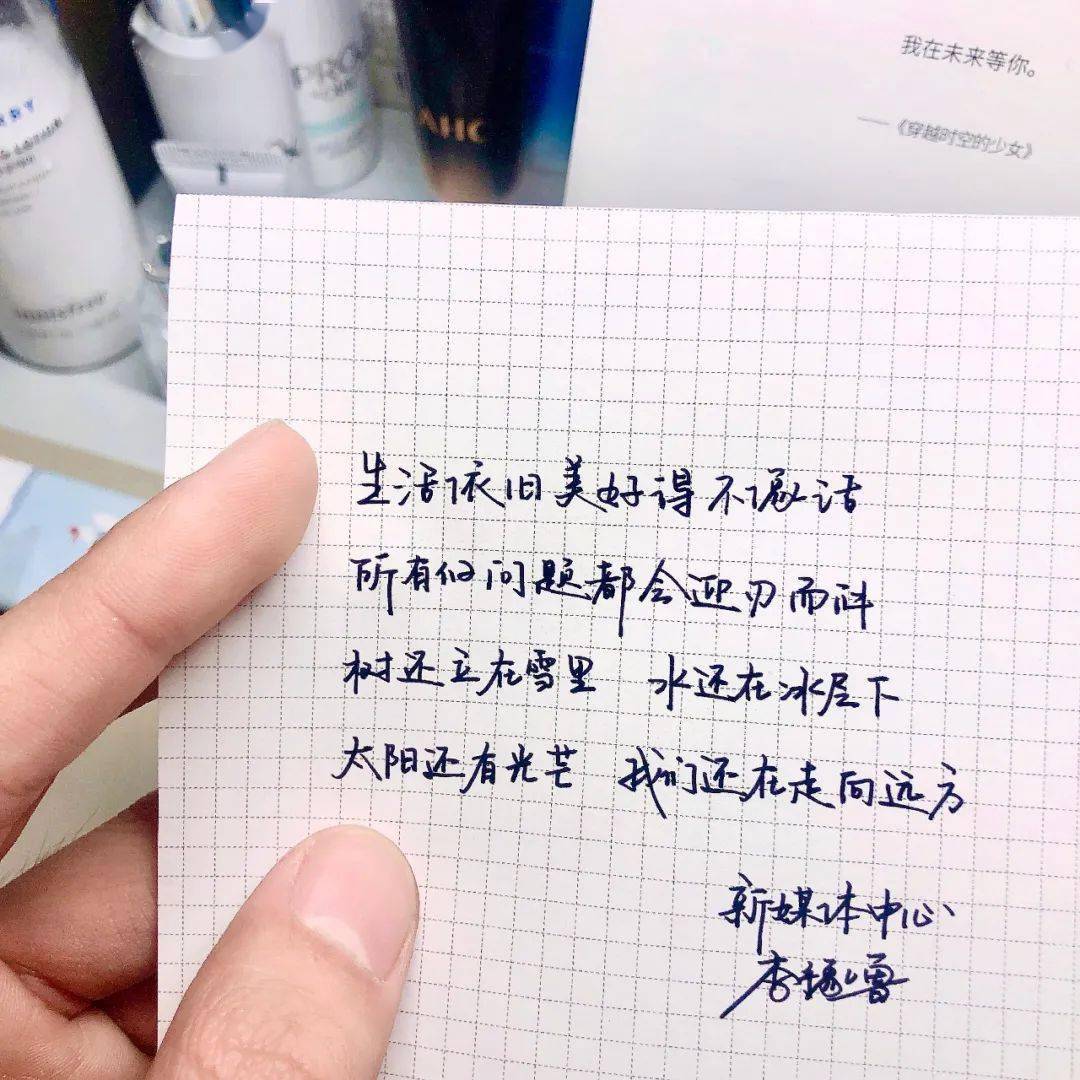 我在未来等你。
——《穿越时空的少女》
AHC
innisfree
生活依旧美好得不像话
所有的问题都会迎刃而解
树还立在雪里 水还在冰层下
太阳还有光芒 我们还在走向远方
新媒体中心
李